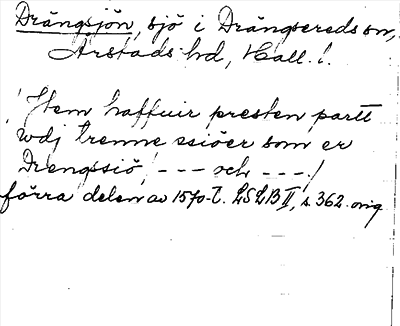 Drängsjön, sjö i Drängsereds sn,
Årstads hd, Hall. l.
! Item haffuir presten partt
wdj trenne ssiöer som er
Drengssiö, --- och ---!
förra delen av 1570-t. LSLB II, s. 362. orig